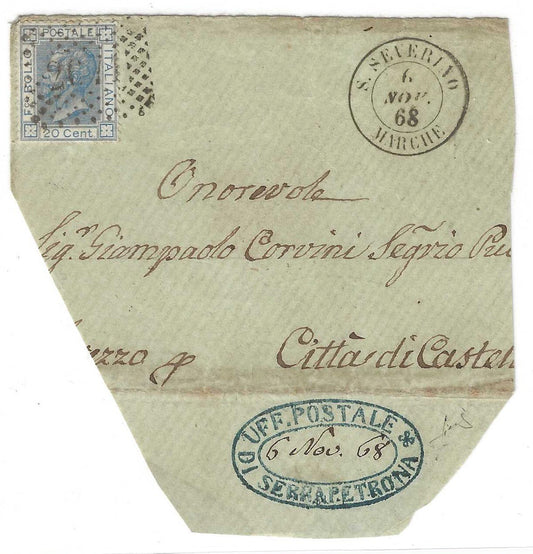 POSTALE
Fco BOLLO
ITALIANO
20 Cent.
S. SEVERINO
6
NOV.
68
MARCHE
Onorevole
Sigr. Giampaolo Corvini Segrio
Città di Castell
UFF. POSTALE
6 Nov. 68
DI SERRAPETRONA